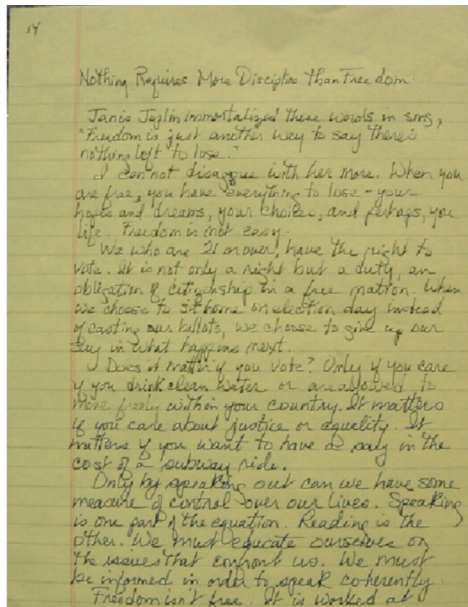 14
Nothing Requires More Discipline Than Freedom.
Janis Joplin immortalized these words in song,
"Freedom is just another way to say there's
nothing left to lose."
I can not disagree with her more. When you
are free, you have everything to lose - your
hopes and dreams, your choices, and perhaps, you
life. Freedom is not easy.
We who are 21 or over, have the right to
vote. It is not only a right but a duty, an
obligation of citizenship in a free nation. When
we choose to sit home on election day instead
of casting our ballots, we choose to give up our
say in what happens next.
Does it matter if you vote? Only if you care
if you drink clean water or are allowed to
move freely within your country. It matters
if you care about justice or equality. It
matters if you want to have a say in the
cost of a subway ride.
Only by speaking out can we have some
measure of control over our lives. Speaking
is one part of the equation. Reading is the
other. We must educate ourselves on
the issues that confront us. We must
be informed in order to speak coherently.
Freedom isn't free. It is worked at